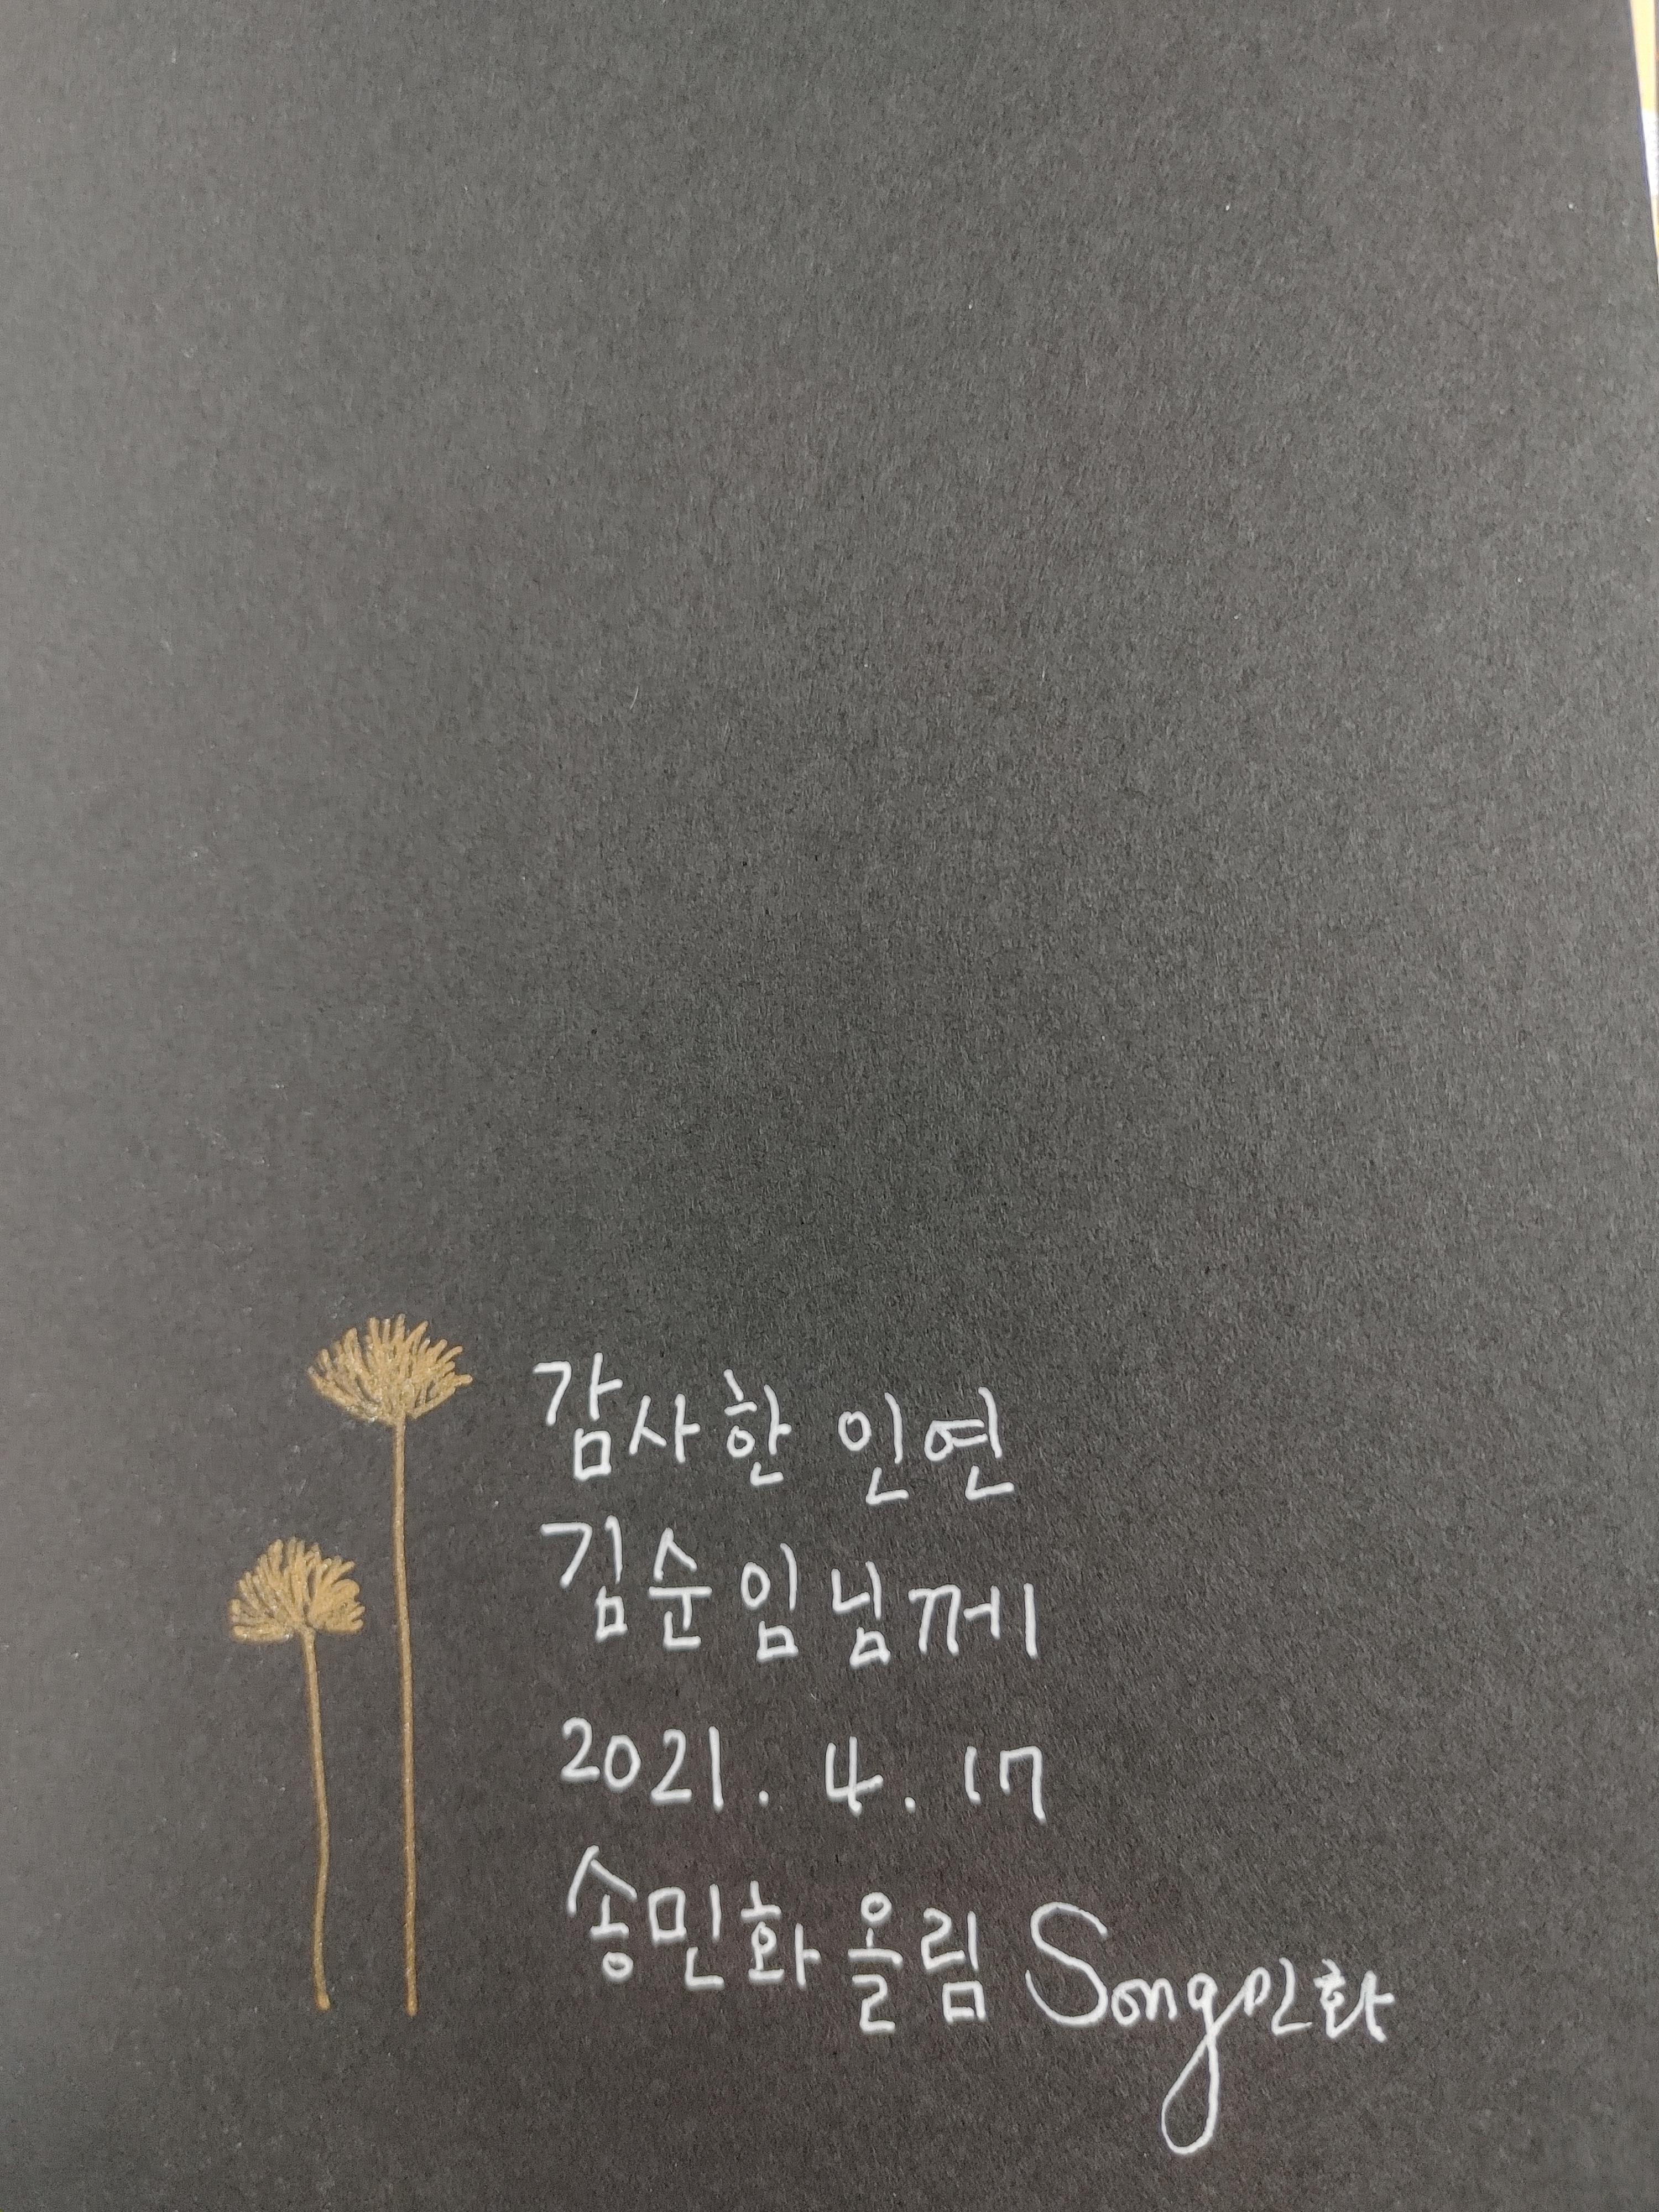 감사한 인연
김순임님께
2021. 4. 17
송민화 올림 Song민화